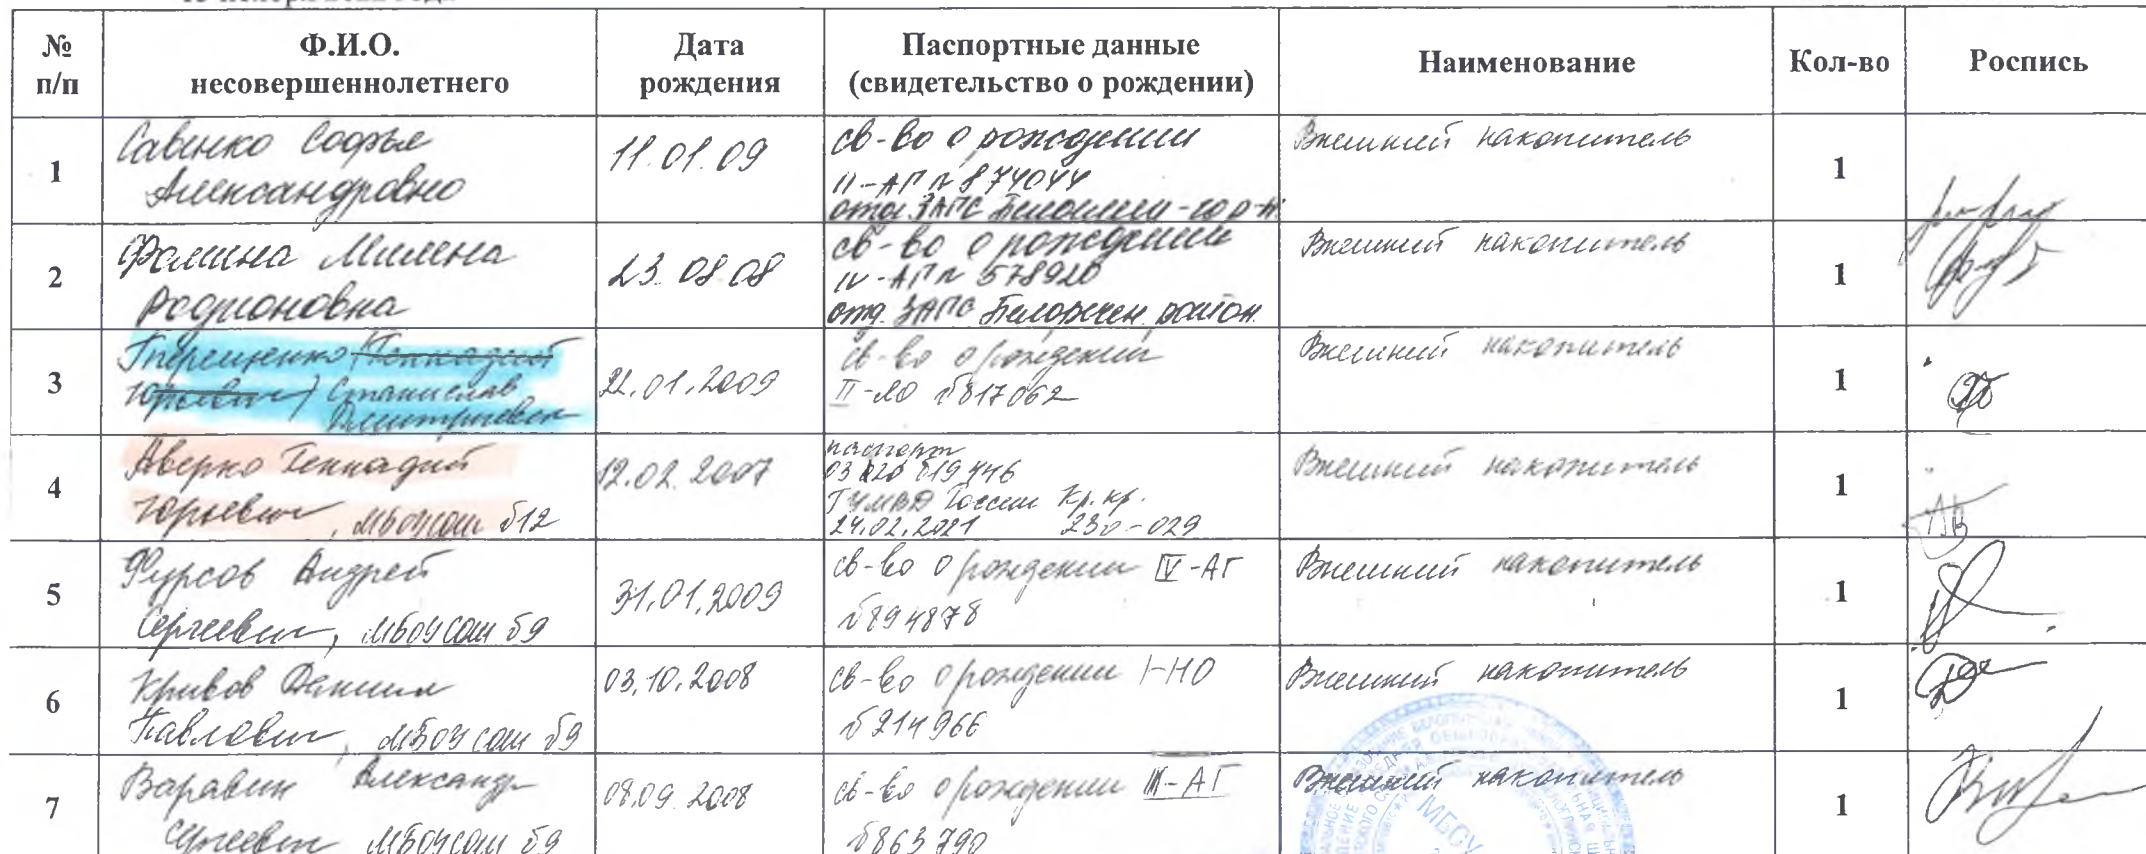 № п/п
Ф.И.О. несовершеннолетнего
Дата рождения
Паспортные данные (свидетельство о рождении)
Наименование
Кол-во
Роспись
1
Савенко Софья
Александровна
11.01.09
св-во о рождении
II-АГ № 874044
отд ЗАГС
Внешний накопитель
1
2
Фомина Милена
Родионовна
23.08.08
св-во о рождении
IV-АГ № 578920
отд. ЗАГС Белореченс. район
Внешний накопитель
1
3
Терещенко (Геннадий
Юрьевич) Станислав
Дмитриевич
22.01.2009
св-во о рождении
II-ЛО №817062
Внешний накопитель
1
4
Аверко Геннадий
Юрьевич, МБОУ СОШ №12
12.02.2007
паспорт
03 20 619446
ГУ МВД России Кр. кр.
24.02.2021 230-029
Внешний накопитель
1
5
Фурсов Андрей
Сергеевич, МБОУ СОШ №9
31.01.2009
св-во о рождении IV-АГ
№894878
Внешний накопитель
1
6
Кривов Даниил
Павлович, МБОУ СОШ №9
03.10.2008
св-во о рождении I-НО
№914966
Внешний накопитель
1
7
Варавин Александр
Сергеевич МБОУ СОШ №9
08.09.2008
св-во о рождении III-АГ
№863790
Внешний накопитель
1
МБОУ